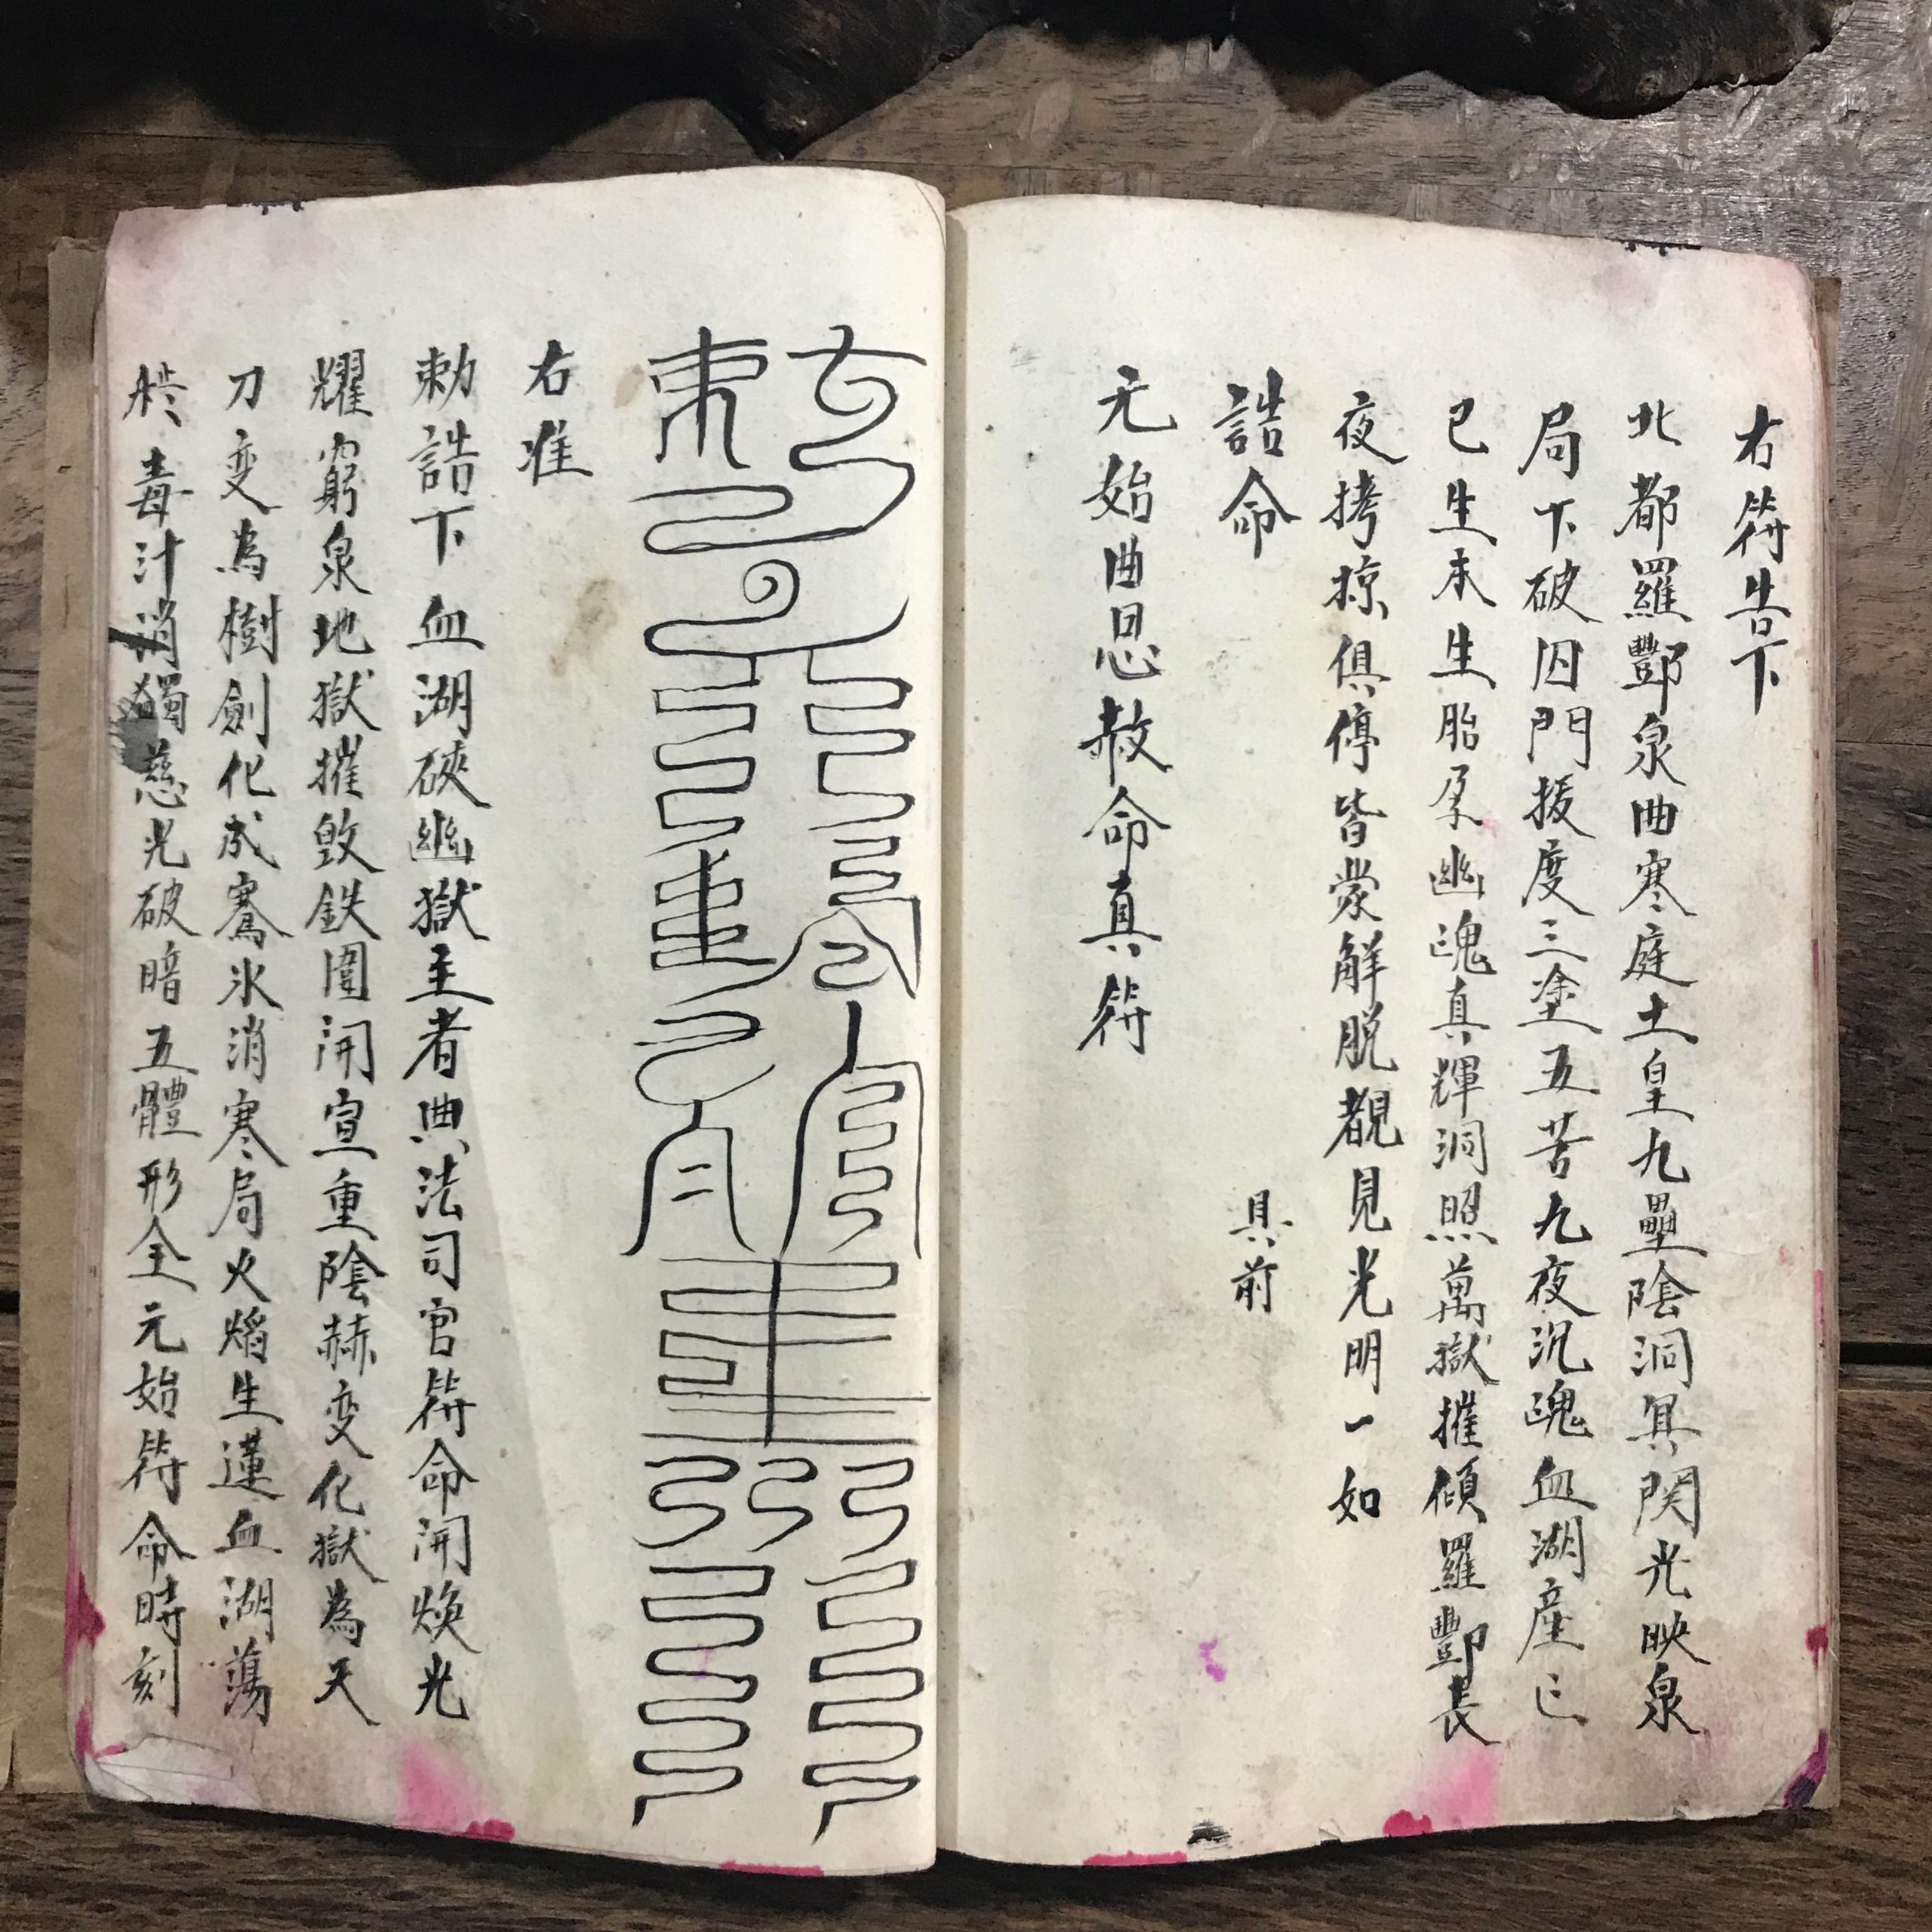 右符告下
北都羅酆泉曲寒庭土皇九壘陰洞冥関光映泉
局下破囚門援度三塗五苦九夜沉魂血湖産亡
已生未生胎孕幽魂真輝洞照萬獄摧傾羅酆長
夜拷掠俱停皆蒙解脱覩見光明一如
誥命 具前
元始曲恩赦命真符
右准
勅誥下 血湖硤幽獄主者典法司官符命開煥光
耀窮泉地獄摧毀鉄圍開宣重陰赫变化獄為天
刀变為樹劍化成騫氷消寒局火熖生蓮血湖蕩
於毒汁消獨慈光破暗五體形全元始符命時刻